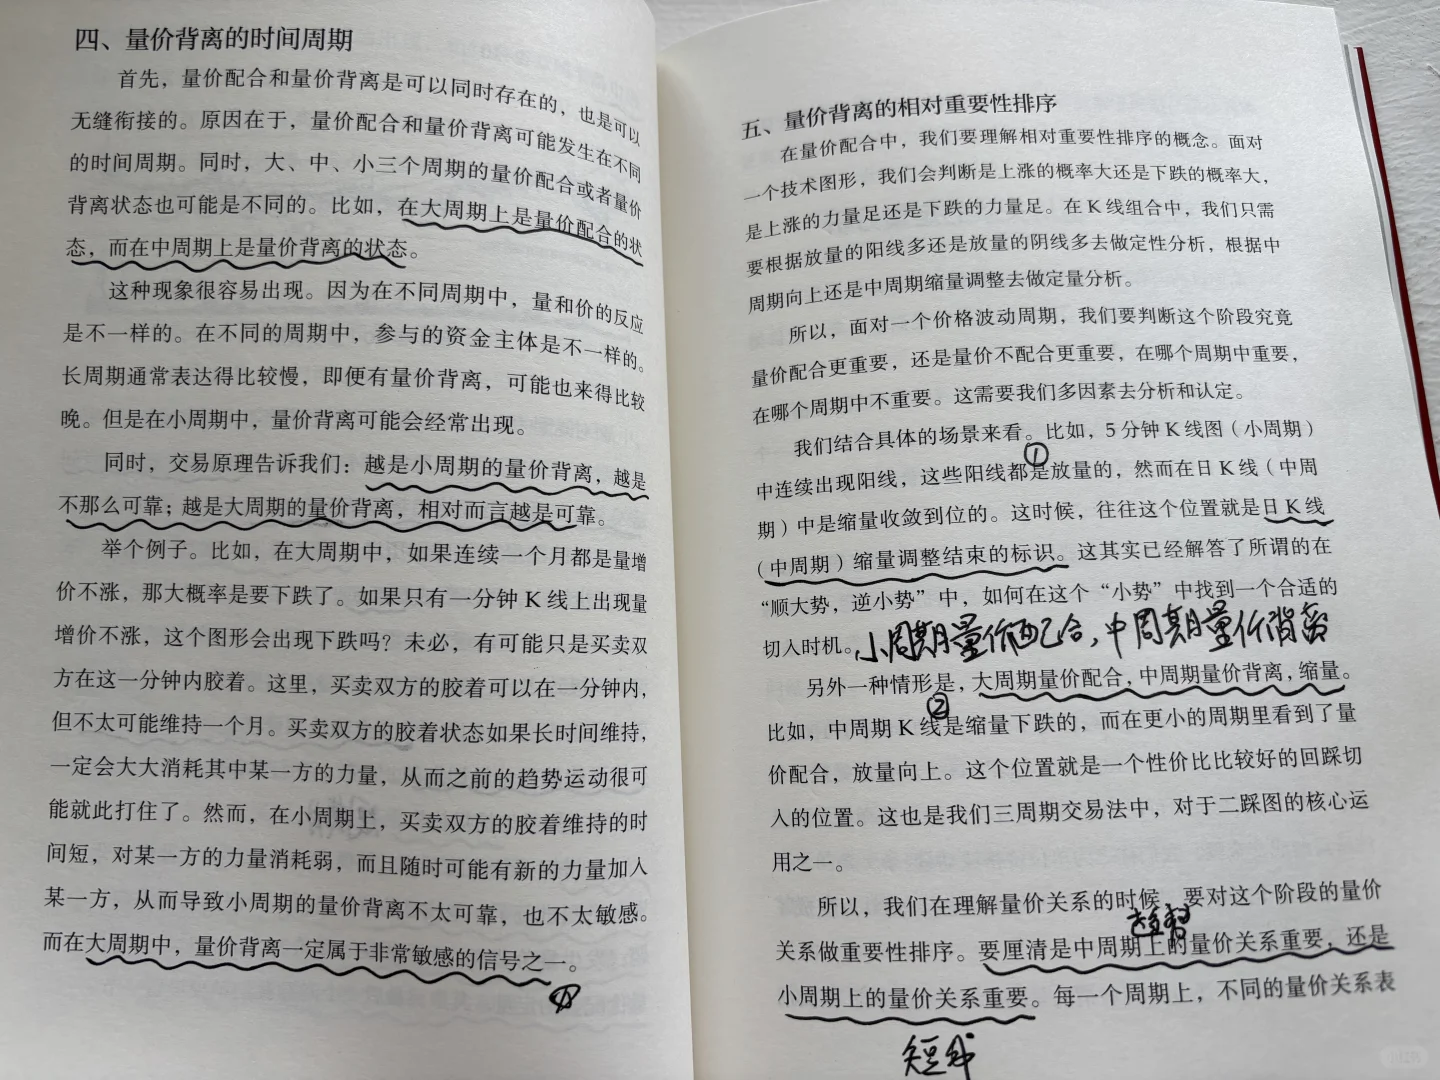 四、量价背离的时间周期
首先，量价配合和量价背离是可以同时存在的，也是可以
无缝衔接的。原因在于，量价配合和量价背离可能发生在不同
的时间周期。同时，大、中、小三个周期的量价配合或者量价
背离状态也可能是不同的。比如，在大周期上是量价配合的状
态，而在中周期上是量价背离的状态。
这种现象很容易出现。因为在不同周期中，量和价的反应
是不一样的。在不同的周期中，参与的资金主体是不一样的。
长周期通常表达得比较慢，即便有量价背离，可能也来得比较
晚。但是在小周期中，量价背离可能会经常出现。
同时，交易原理告诉我们：越是小周期的量价背离，越是
不那么可靠；越是大周期的量价背离，相对而言越是可靠。
举个例子。比如，在大周期中，如果连续一个月都是量增
价不涨，那大概率是要下跌了。如果只有一分钟 K 线上出现量
增价不涨，这个图形会出现下跌吗？未必，有可能只是买卖双
方在这一分钟内胶着。这里，买卖双方的胶着可以在一分钟内，
但不太可能维持一个月。买卖双方的胶着状态如果长时间维持，
一定会大大消耗其中某一方的力量，从而之前的趋势运动很可
能就此打住了。然而，在小周期上，买卖双方的胶着维持的时
间短，对某一方的力量消耗弱，而且随时可能有新的力量加入
某一方，从而导致小周期的量价背离不太可靠，也不太敏感。
而在大周期中，量价背离一定属于非常敏感的信号之一。
五、量价背离的相对重要性排序
在量价配合中，我们要理解相对重要性排序的概念。面对
一个技术图形，我们会判断是上涨的概率大还是下跌的概率大，
是上涨的力量足还是下跌的力量足。在 K 线组合中，我们只需
要根据放量的阳线多还是放量的阴线多去做定性分析，根据中
周期向上还是中周期缩量调整去做定量分析。
所以，面对一个价格波动周期，我们要判断这个阶段究竟
量价配合更重要，还是量价不配合更重要，在哪个周期中重要，
在哪个周期中不重要。这需要我们多因素去分析和认定。
我们结合具体的场景来看。比如，5 分钟 K 线图（小周期）
①
中连续出现阳线，这些阳线都是放量的，然而在日 K 线（中周
期）中是缩量收敛到位的。这时候，往往这个位置就是日 K 线
（中周期）缩量调整结束的标识。这其实已经解答了所谓的在
“顺大势，逆小势”中，如何在这个“小势”中找到一个合适的
切入时机。小周期量价配合，中周期量价背离
另外一种情形是，大周期量价配合，中周期量价背离，缩量。
②
比如，中周期 K 线是缩量下跌的，而在更小的周期里看到了量
价配合，放量向上。这个位置就是一个性价比比较好的回踩切
入的位置。这也是我们三周期交易法中，对于二踩图的核心运
用之一。
所以，我们在理解量价关系的时候，要对这个阶段的量价
关系做重要性排序。要厘清是中周期上的量价关系重要，还是
小周期上的量价关系重要。每一个周期上，不同的量价关系表
短线